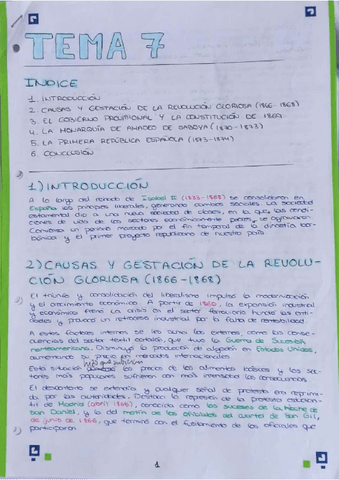 TEMA 7
INDICE
1. INTRODUCCIÓN
2. CAUSAS Y GESTACIÓN DE LA REVOLUCIÓN GLORIOSA (1866-1868)
3. EL GOBIERNO PROVISIONAL Y LA CONSTITUCIÓN DE 1869
4. LA MONARQUÍA DE AMADEO DE SABOYA (1870-1873)
5. LA PRIMERA REPÚBLICA ESPAÑOLA (1873-1874)
6. CONCLUSIÓN
1) INTRODUCCIÓN
A lo largo del reinado de Isabel II (1833-1868) se consolidaron en
España los principios liberales, generando cambios sociales. La sociedad
estamental dio a una nueva sociedad de clases, en la que, las condi-
ciones de vida de los sectores económicamente peores, se agravaron.
Comienza un periodo marcado por el fin temporal de la dinastía bor-
bónica y el primer proyecto republicano de nuestro país
2) CAUSAS Y GESTACIÓN DE LA REVOLU-
CIÓN GLORIOSA (1866-1868)
El triunfo y consolidación del liberalismo impulsó la modernización
y el crecimiento económico. A partir de 1860, la expansión industrial
y económica frena. La crisis en el sector ferroviario hunde las enti-
dades y produce un retroceso industrial por la falta de rentabilidad.
A estos factores internos se les unen los externos como las conse-
cuencias del sector textil condición, que tuvo la Guerra de Sucesión
norteamericana. Disminuyó la producción de algodón en Estados Unidos,
aumentando su precio en mercados internacionales
Esta situación los precios de los alimentos básicos y los sec-
tores más populares sufrieron con más intensidad las consecuencias.
El descontento se extendía y cualquier señal de protesta era reprimi-
da por las autoridades. Destaca la represión de la protesta estudian-
til de Madrid (abril 1865), conocida como los sucesos de la Noche de
San Daniel, y la del motín de los oficiales del cuartel de San Gil,
de junio de 1866, que terminó con el fusilamiento de los oficiales que
participaron
1